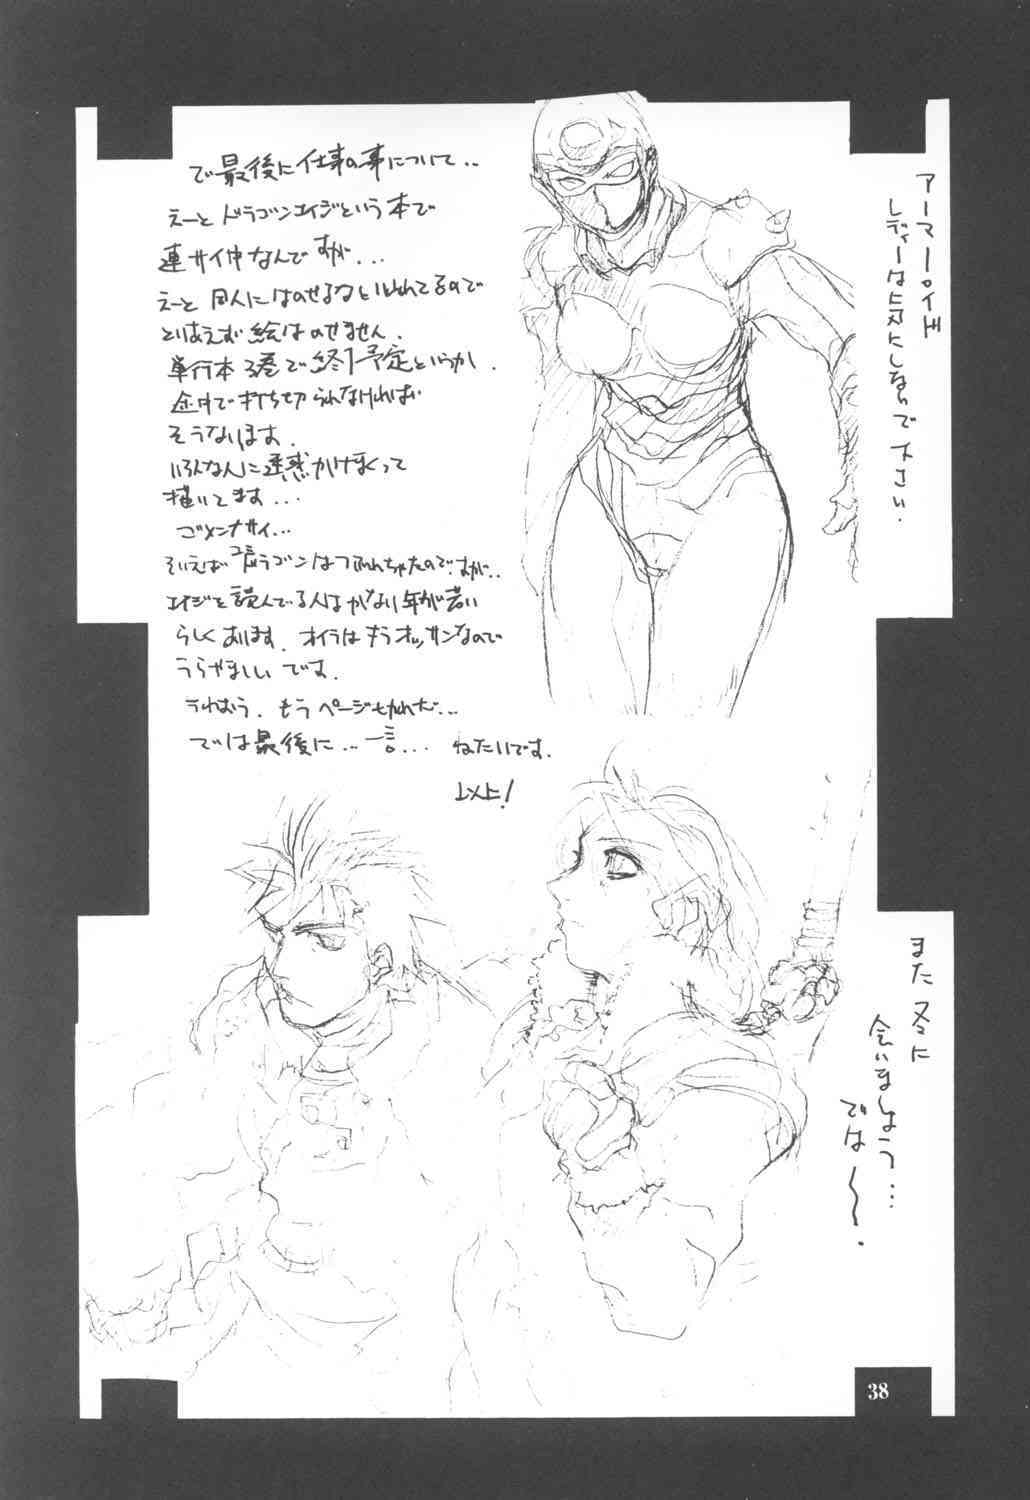 で最後に仕事の事について..
えーとドラゴンエイジという本で
連サイ中なんですが...
えーと同人にはのせるなといわれてるので
とりあえず絵はのせません.
単行本3巻で終了予定というか.
途中で打ち切られなければ
そうなります.
いろんな人に迷惑かけまくって
描いてます...
ゴメンナサイ...
そいえばコミックドラゴンはつぶれちゃたのですが..
エイジを読んでる人はかなり年が若い
らしくあります. オイラはもうオッサンなので
うらやましいです.
うわおう. もうページも切れだ...
では最後に...一言... ねたいです.
以上!
アーマーロイド
レディーは気にしないで下さい.
また冬に
会いましょう...
では〜〜.
38